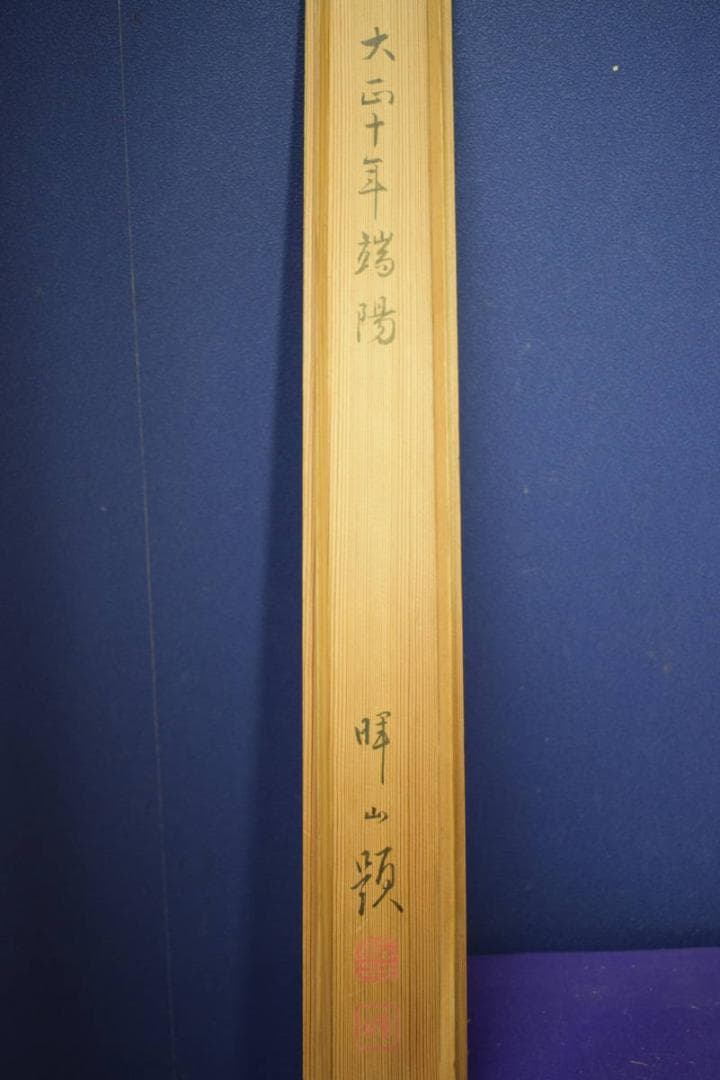 大正十年端陽
暉山題